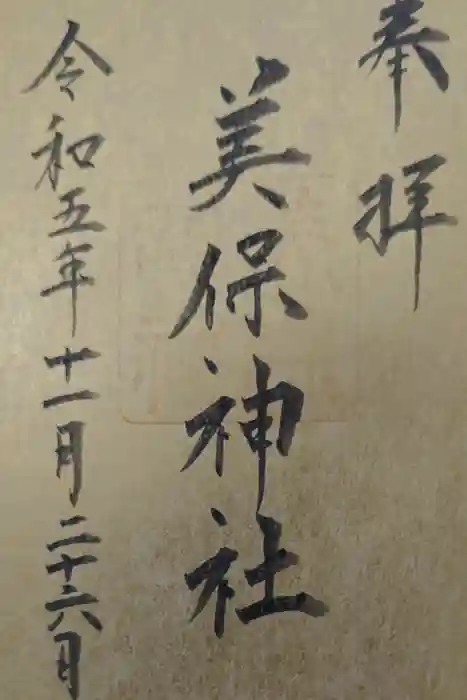 奉拝
美保神社
令和五年十一月二十六月